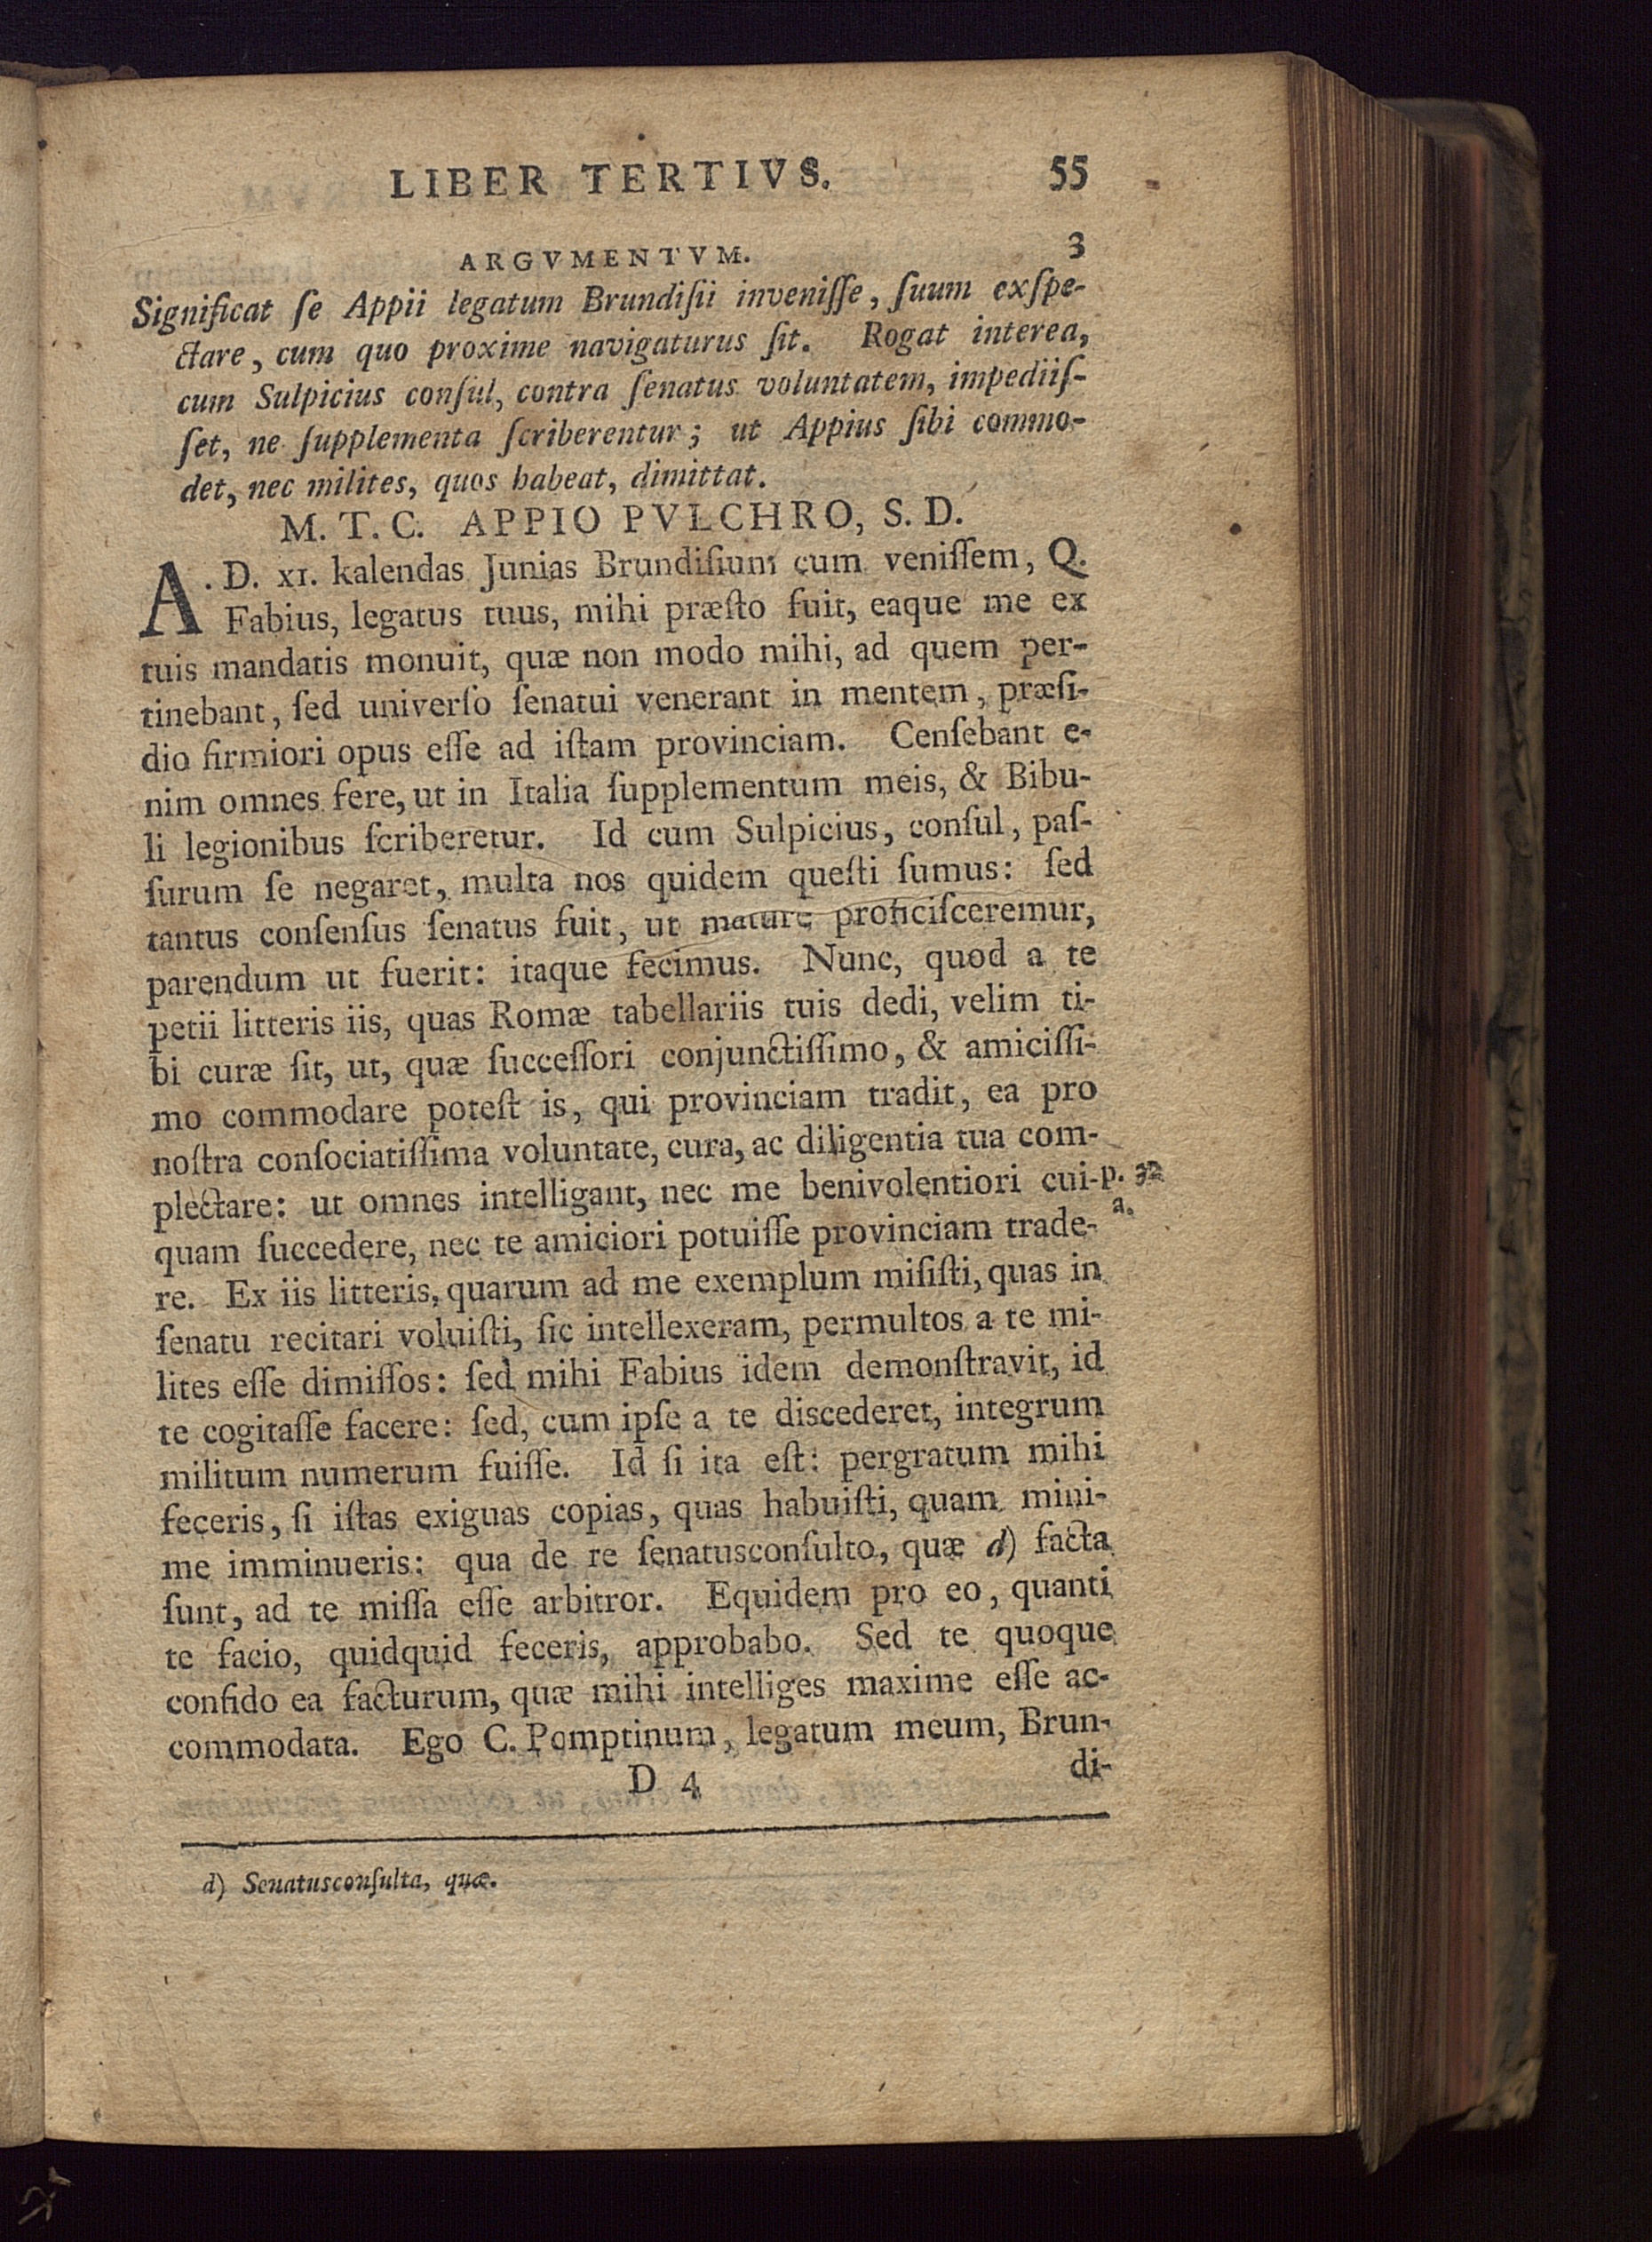 LIBER TERTIVS. 55
ARGVMENTVM. 3
Significat ſe Appii legatum Brundiſii inveniſſe, ſuum exſpe-
ctare, cum quo proxime navigaturus ſit. Rogat interea,
cum Sulpicius conſul, contra ſenatus voluntatem, impediiſ-
ſet, ne ſupplementa ſcriberentur; ut Appius ſibi commo-
det, nec milites, quos habeat, dimittat.
M. T. C. APPIO PVLCHRO, S. D.
A. D. XI. kalendas Junias Brundiſium cum veniſſem, Q.
Fabius, legatus tuus, mihi præſto fuit, eaque me ex
tuis mandatis monuit, quæ non modo mihi, ad quem per-
tinebant, ſed univerſo ſenatui venerant in mentem, præſi-
dio firmiori opus eſſe ad iſtam provinciam. Cenſebant e-
nim omnes fere, ut in Italia ſupplementum meis, & Bibu-
li legionibus ſcriberetur. Id cum Sulpicius, conſul, paſ-
ſurum ſe negaret, multa nos quidem queſti ſumus: ſed
tantus conſenſus ſenatus fuit, ut mature proficiſceremur,
parendum ut fuerit: itaque fecimus. Nunc, quod a te
petii litteris iis, quas Romæ tabellariis tuis dedi, velim ti-
bi curæ ſit, ut, quæ ſucceſſori conjunctiſſimo, & amiciſſi-
mo commodare poteſt is, qui provinciam tradit, ea pro
noſtra conſociatiſſima voluntate, cura, ac diligentia tua com-
plectare: ut omnes intelligant, nec me benivolentiori cui- p. 32
quam ſuccedere, nec te amiciori potuiſſe provinciam trade- a.
re. Ex iis litteris, quarum ad me exemplum miſiſti, quas in
ſenatu recitari voluiſti, ſic intellexeram, permultos a te mi-
lites eſſe dimiſſos: ſed mihi Fabius idem demonſtravit, id
te cogitaſſe facere: ſed, cum ipſe a te discederet, integrum
militum numerum fuiſſe. Id ſi ita eſt: pergratum mihi
feceris, ſi iſtas exiguas copias, quas habuiſti, quam mini-
me imminueris: qua de re ſenatusconſulto, quæ d) facta
ſunt, ad te miſſa eſſe arbitror. Equidem pro eo, quanti
te facio, quidquid feceris, approbabo. Sed te quoque
confido ea facturum, quæ mihi intelliges maxime eſſe ac-
commodata. Ego C. Pomptinum, legatum meum, Brun-
D 4 di-
d) Senatusconſulta, quæ.